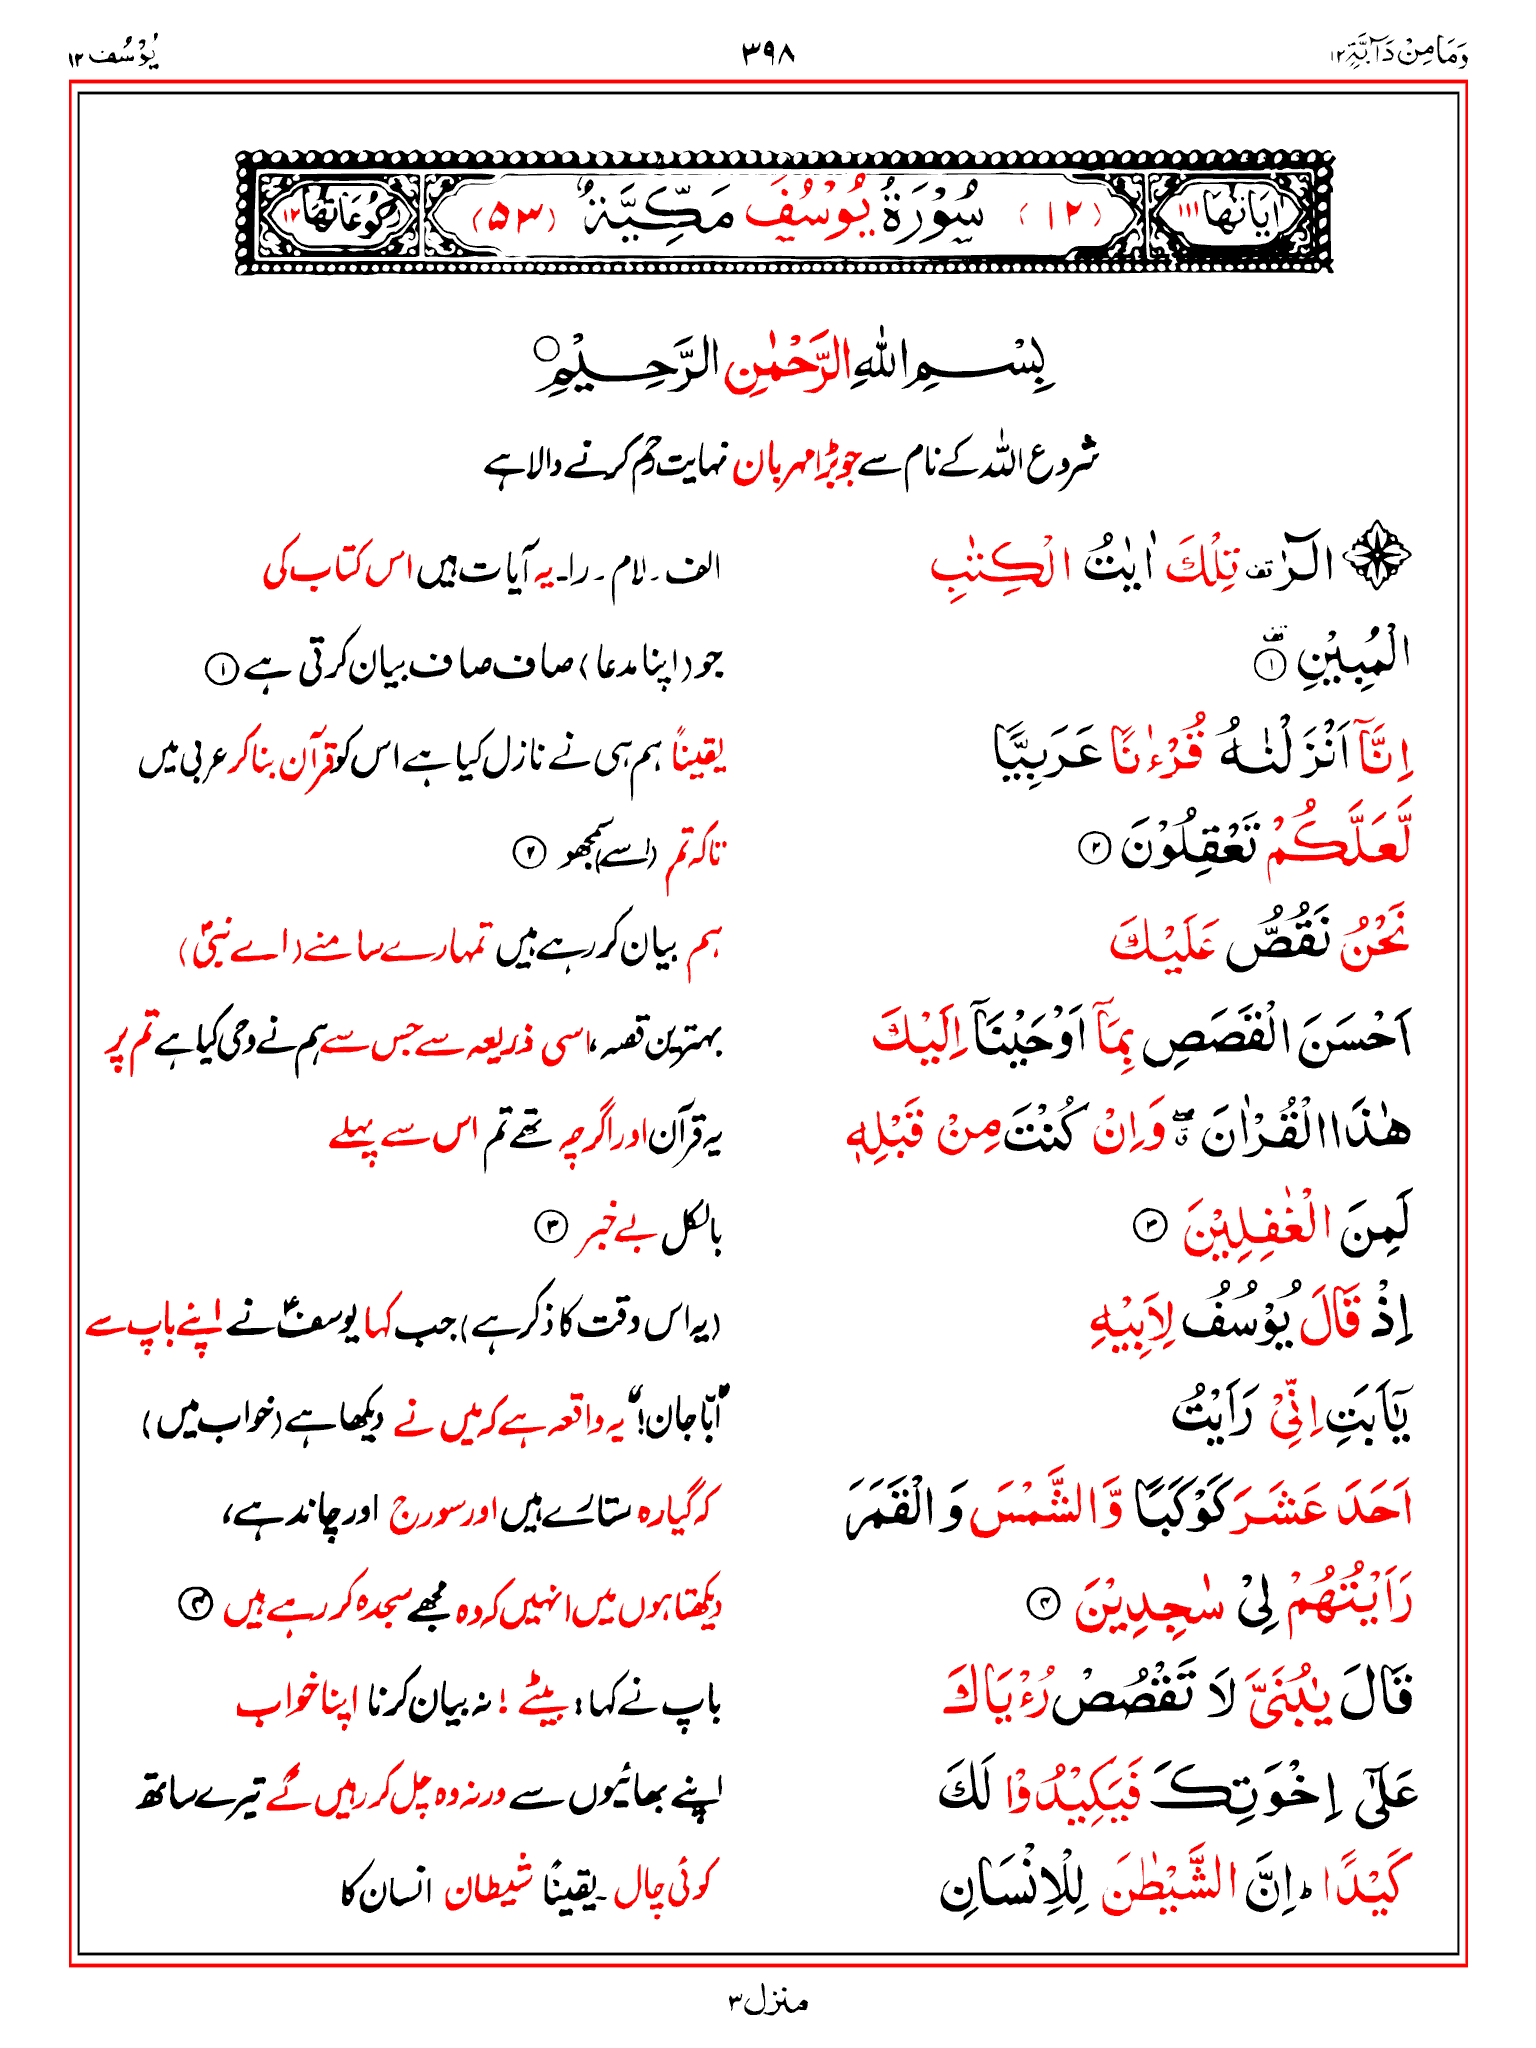 وَمَا مِنْ دَآبَّةٍ ١٢ ٣٩٨ يُوْسُف ١٢
اٰيَاتُهَا ١١١ (١٢) سُوْرَةُ يُوْسُفَ مَكِّيَّةٌ (٥٣) رُكُوْعَاتُهَا ١٢
بِسْمِ اللّٰهِ الرَّحْمٰنِ الرَّحِيْمِ ○
شروع اللہ کے نام سے جو بڑا مہربان نہایت رحم کرنے والا ہے
الٓرٰ ۟ تِلْكَ اٰيٰتُ الْكِتٰبِ الف۔ لام۔ را۔ یہ آیات ہیں اس کتاب کی
الْمُبِيْنِ ١ جو (اپنا مدعا) صاف صاف بیان کرتی ہے ١
اِنَّآ اَنْزَلْنٰهُ قُرْءٰنًا عَرَبِيًّا یقیناً ہم ہی نے نازل کیا ہے اس کو قرآن بنا کر عربی میں
لَّعَلَّكُمْ تَعْقِلُوْنَ ٢ تاکہ تم (اسے) سمجھو ٢
نَحْنُ نَقُصُّ عَلَيْكَ ہم بیان کر رہے ہیں تمہارے سامنے (اے نبیؐ)
اَحْسَنَ الْقَصَصِ بِمَآ اَوْحَيْنَآ اِلَيْكَ بہترین قصہ، اسی ذریعہ سے جس سے ہم نے وحی کیا ہے تم پر
هٰذَا الْقُرْاٰنَ ۖ وَاِنْ كُنْتَ مِنْ قَبْلِهٖ یہ قرآن اور اگرچہ تھے تم اس سے پہلے
لَمِنَ الْغٰفِلِيْنَ ٣ بالکل بے خبر ٣
اِذْ قَالَ يُوْسُفُ لِاَبِيْهِ (یہ اس وقت کا ذکر ہے) جب کہا یوسفؑ نے اپنے باپ سے
يٰٓاَبَتِ اِنِّيْ رَاَيْتُ "ابّا جان!" یہ واقعہ ہے کہ میں نے دیکھا ہے (خواب میں)
اَحَدَ عَشَرَ كَوْكَبًا وَّالشَّمْسَ وَالْقَمَرَ کہ گیارہ ستارے ہیں اور سورج اور چاند ہے،
رَاَيْتُهُمْ لِيْ سٰجِدِيْنَ ٤ دیکھتا ہوں میں انہیں کہ وہ مجھے سجدہ کر رہے ہیں ٤
قَالَ يٰبُنَيَّ لَا تَقْصُصْ رُءْيَاكَ باپ نے کہا: بیٹے! نہ بیان کرنا اپنا خواب
عَلٰٓى اِخْوَتِكَ فَيَكِيْدُوْا لَكَ اپنے بھائیوں سے ورنہ وہ چل کر رہیں گے تیرے ساتھ
كَيْدًا ؕ اِنَّ الشَّيْطٰنَ لِلْاِنْسَانِ کوئی چال۔ یقیناً شیطان انسان کا
منزل ٣